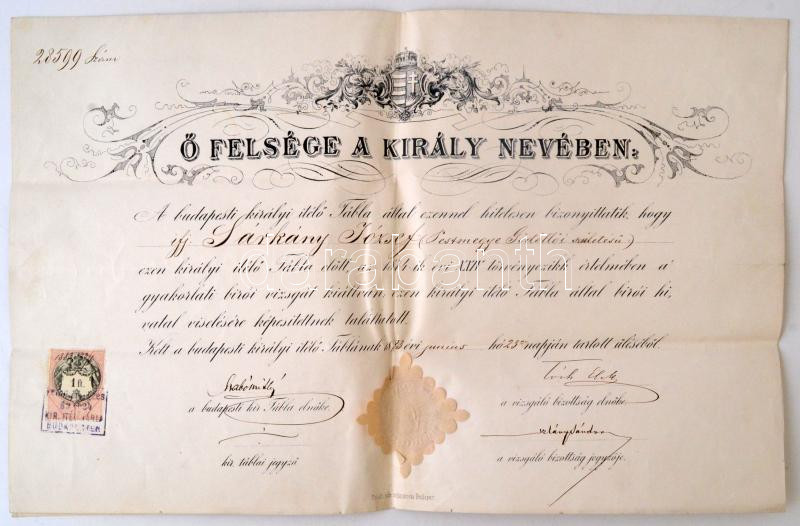 28599 Szám
Ő FELSÉGE A KIRÁLY NEVÉBEN:
A budapesti királyi itélő Tábla által ezennel hitelesen bizonyittatik, hogy
ifj Sárkány József (Pestmegye születésü)
ezen királyi itélő Tábla előtt, az ik évi törvényczikk értelmében a
gyakorlati birói vizsgát kiállván, ezen királyi itélő Tábla által birói hi,
vatal viselésére képesitettnek találtatott.
Kelt a budapesti királyi itélő Táblának évi junius hó 23 napján tartott üléséből.
1 ft.
KIR. ITÉLŐ TÁBLA
BUDAPESTEN
a budapesti kir Tábla elnöke.
a vizsgáló bizottság elnöke.
kir. táblai jegyző
a vizsgáló bizottság jegyzője.